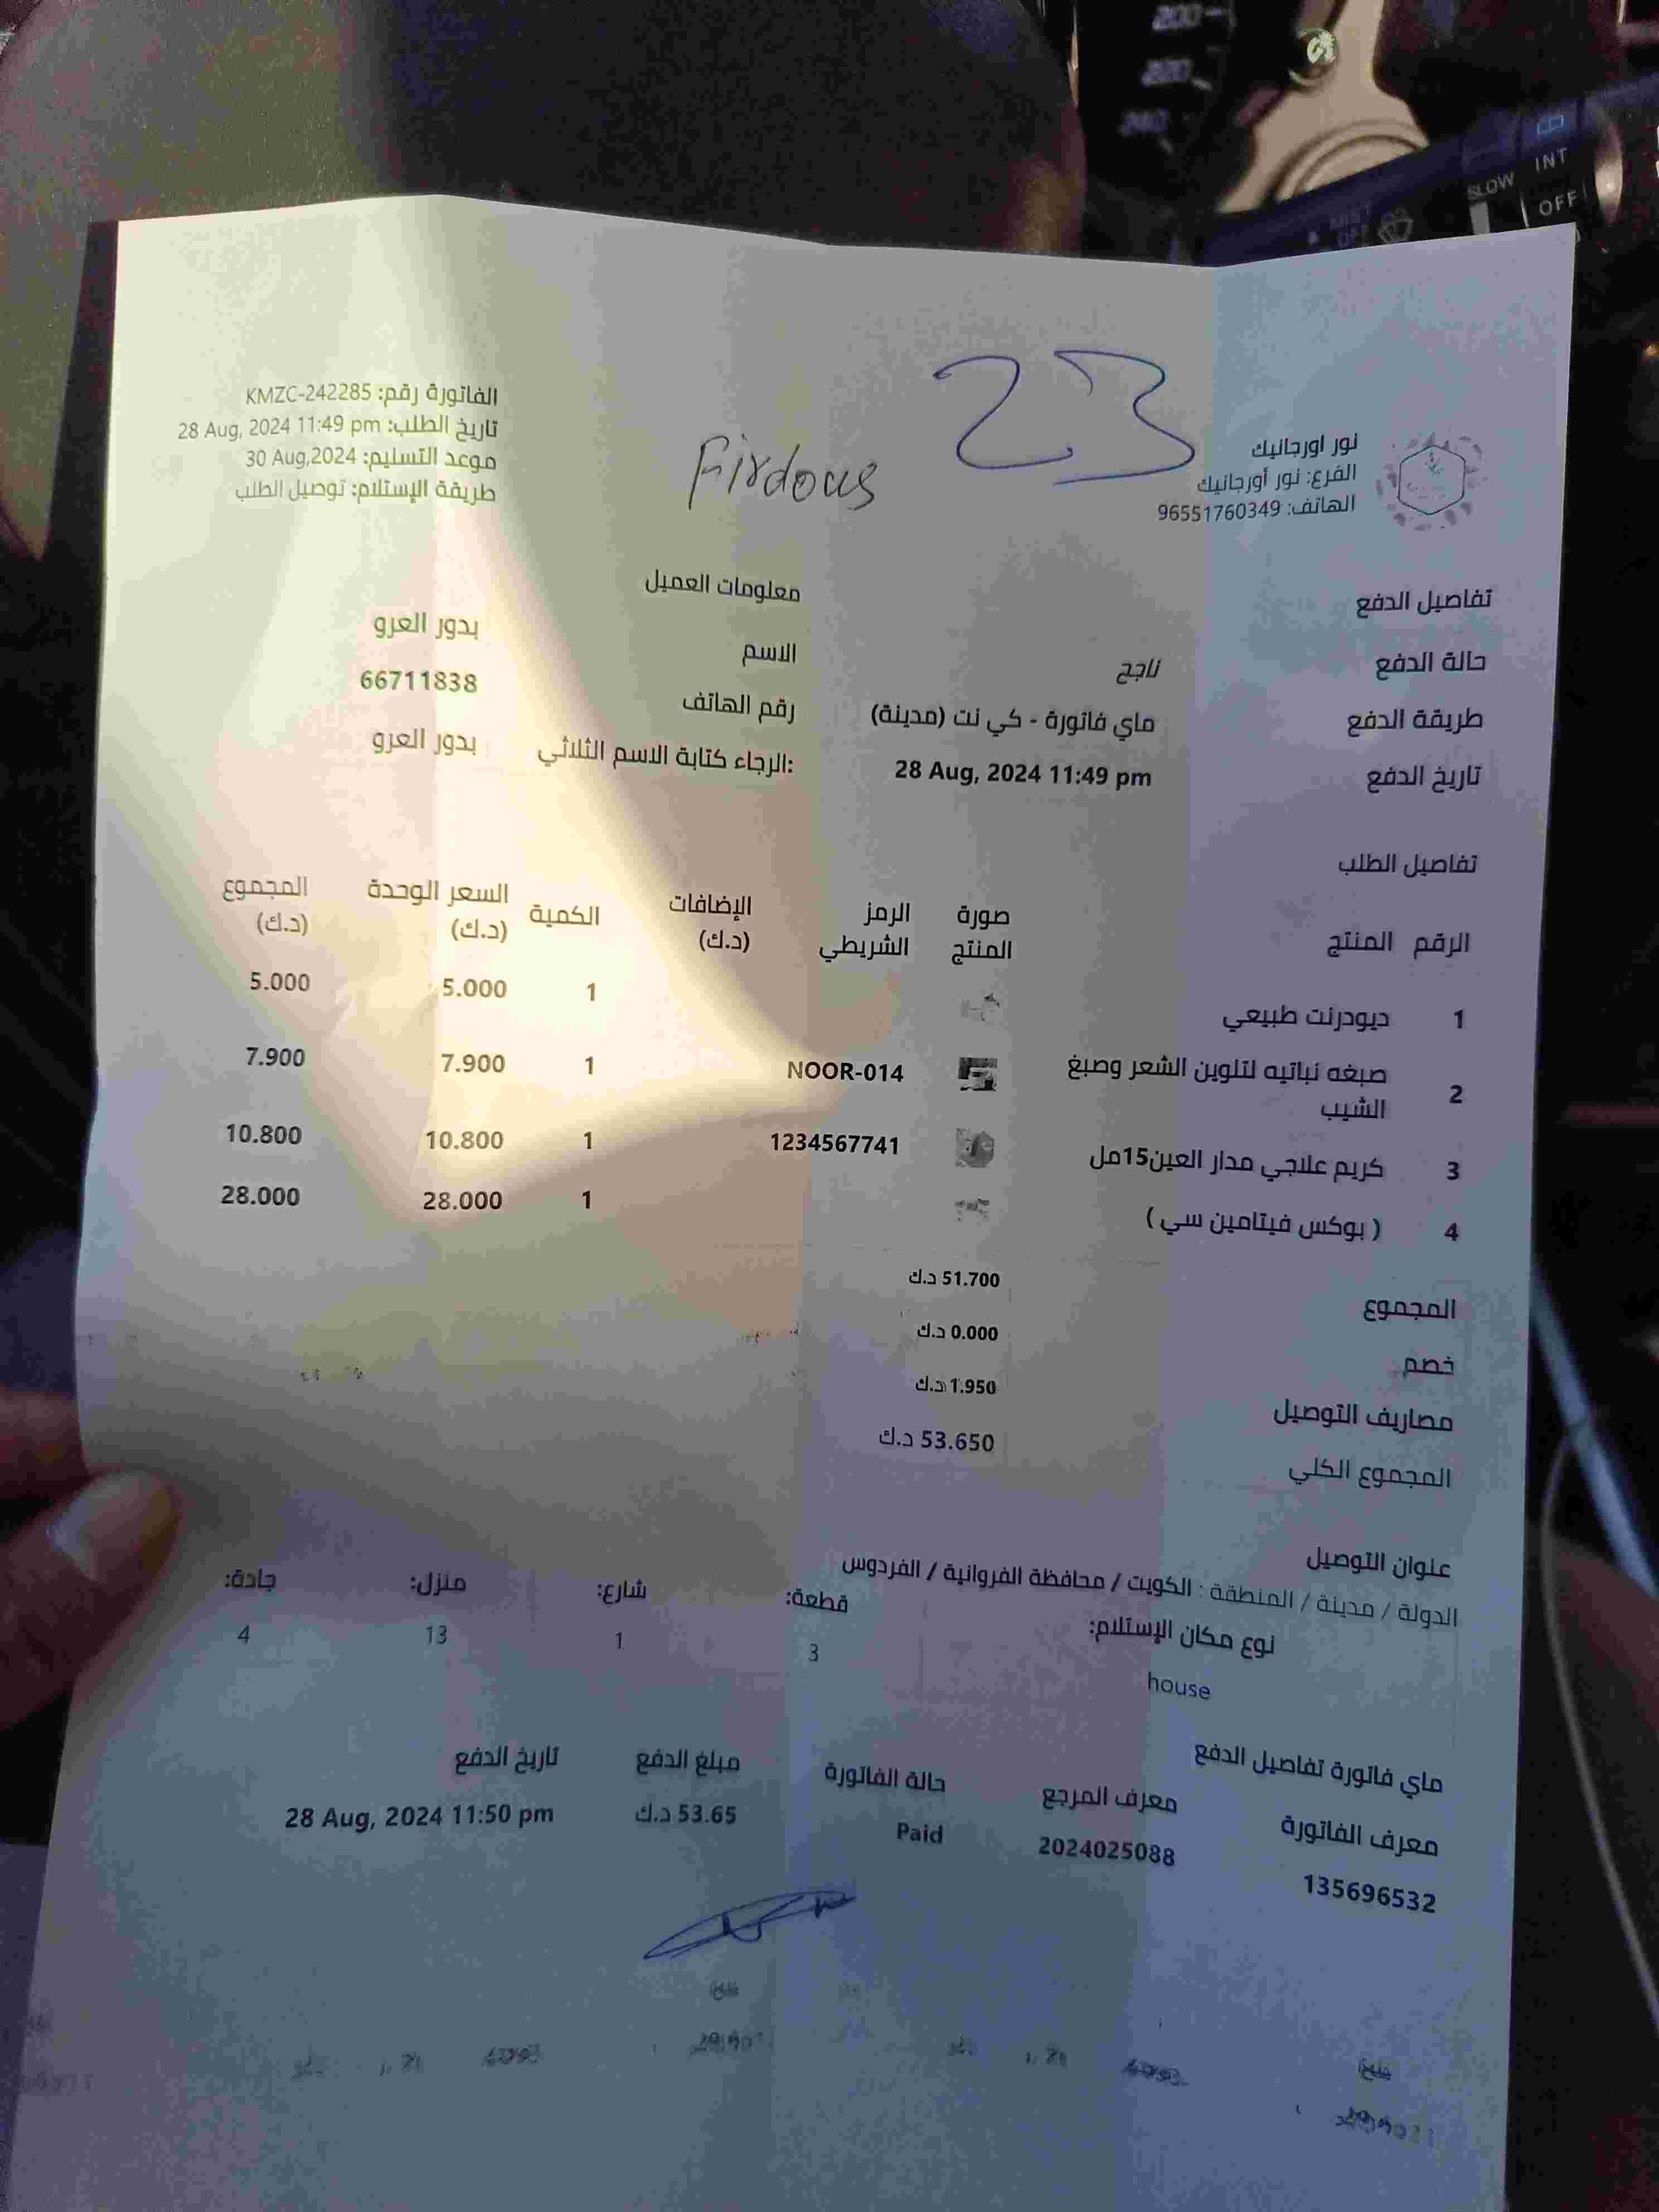 200
220
240
INT
SLOW
OFF
MIST
OFF
23
Firdous
نور اورجانيك
الفرع: نور أورجانيك
الهاتف: 96551760349
الفاتورة رقم: KMZC-242285
تاريخ الطلب: 28 Aug, 2024 11:49 pm
موعد التسليم: 30 Aug,2024
طريقة الإستلام: توصيل الطلب
تفاصيل الدفع
حالة الدفع ناجح
طريقة الدفع ماي فاتورة - كي نت (مدينة)
تاريخ الدفع 28 Aug, 2024 11:49 pm
معلومات العميل
الاسم بدور العرو
رقم الهاتف 66711838
الرجاء كتابة الاسم الثلاثي: بدور العرو
تفاصيل الطلب
الرقم المنتج صورة المنتج الرمز الشريطي الإضافات (د.ك) الكمية السعر الوحدة (د.ك) المجموع (د.ك)
1 ديودرنت طبيعي 1 5.000 5.000
2 صبغه نباتيه لتلوين الشعر وصبغ NOOR-014 1 7.900 7.900
الشيب
3 كريم علاجي مدار العين15مل 1234567741 1 10.800 10.800
4 ( بوكس فيتامين سي ) 1 28.000 28.000
المجموع 51.700 د.ك
خصم 0.000 د.ك
مصاريف التوصيل 1.950 د.ك
المجموع الكلي 53.650 د.ك
عنوان التوصيل
الدولة / مدينة / المنطقة : الكويت / محافظة الفروانية / الفردوس
نوع مكان الإستلام: قطعة: شارع: منزل: جادة:
house 3 1 13 4
ماي فاتورة تفاصيل الدفع
معرف الفاتورة معرف المرجع حالة الفاتورة مبلغ الدفع تاريخ الدفع
135696532 2024025088 Paid 53.65 د.ك 28 Aug, 2024 11:50 pm